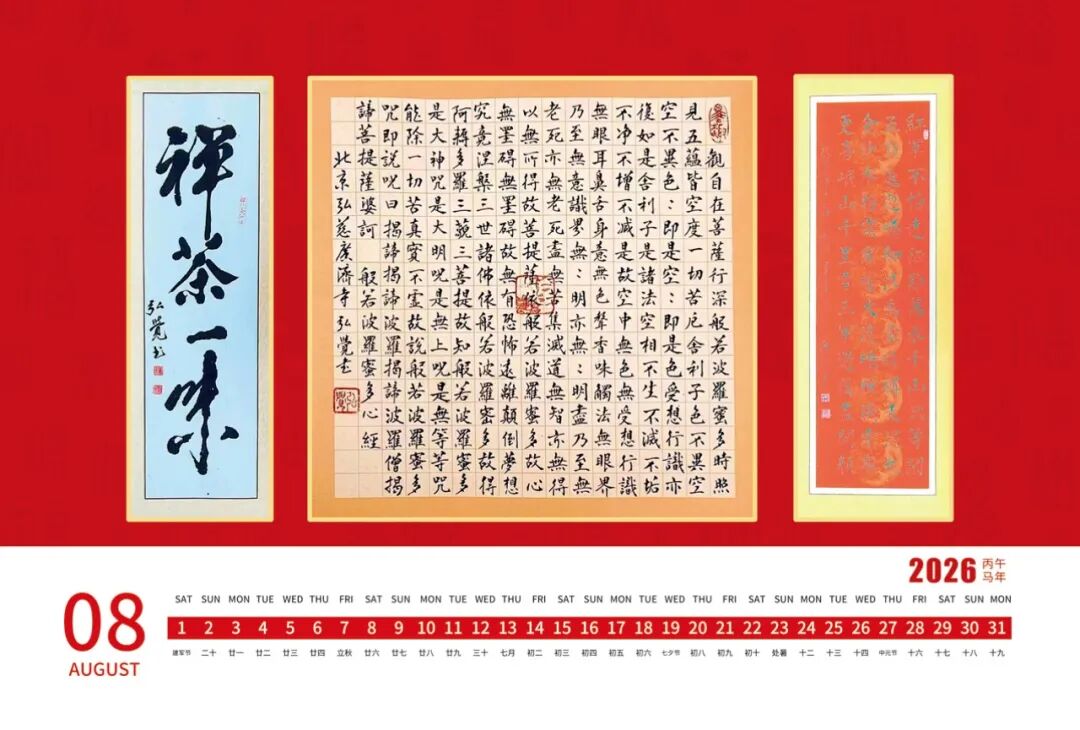 禅茶一味
弘覺书
觀自在菩薩行深般若波羅蜜多時照
見五蘊皆空度一切苦厄舍利子色不異空
空不異色：即是空：即是色受想行識亦
復如是舍利子是諸法空相不生不滅不垢
不净不增不減是故空中無色無受想行識
無眼耳鼻舌身意無色聲香味觸法無眼界
乃至無意識界無：明亦無：明盡乃至無
老死亦無老死盡無苦集滅道無智亦無得
以無所得故菩提薩依般若波羅蜜多故心
無罣礙無罣礙故無有恐怖遠離顛倒夢想
究竟涅槃三世諸佛依般若波羅蜜多故得
阿耨多羅三藐三菩提故知般若波羅蜜多
是大神咒是大明咒是無上咒是無等等咒
能除一切苦真實不虛故說般若波羅蜜多
咒即說咒曰揭諦揭諦波羅揭諦波羅僧揭
諦菩提薩婆訶 般若波羅蜜多心經
北京弘慈廣濟寺弘覺书
紅軍不怕遠征難萬水千山只等閑
更喜岷山千里雪三軍過後盡開顏
2026 丙午马年
08
AUGUST
SAT SUN MON TUE WED THU FRI SAT SUN MON TUE WED THU FRI SAT SUN MON TUE WED THU FRI SAT SUN MON TUE WED THU FRI SAT SUN MON
1 2 3 4 5 6 7 8 9 10 11 12 13 14 15 16 17 18 19 20 21 22 23 24 25 26 27 28 29 30 31
建军节 二十 廿一 廿二 廿三 廿四 立秋 廿六 廿七 廿八 廿九 三十 七月 初二 初三 初四 初五 初六 七夕节 初八 初九 初十 处暑 十二 十三 十四 中元节 十六 十七 十八 十九